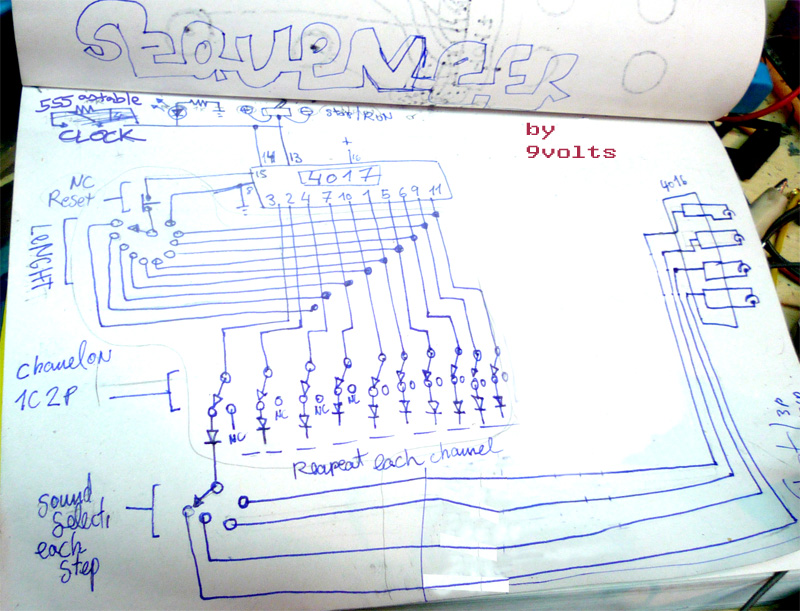 SEQUENCER
by
9volts
555 astable
CLOCK
start/RUN or
14 13 + 16
15 4017 8
3 2 4 7 10 1 5 6 9 11
NC
Reset
LONGHT
4016
chanelON
1C2P
NC NC NC NC
Reapeat each channel
sound
select
each
step